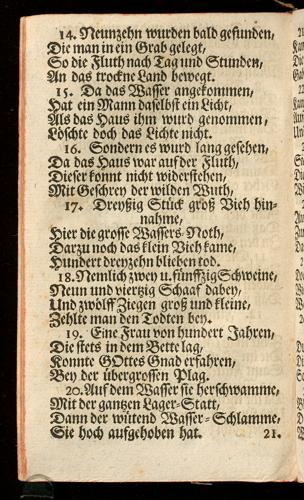 14. Neunzehn wurden bald gefunden,
Die man in ein Grab gelegt,
So die Fluth nach Tag und Stunden,
An das trockne Land bewegt.
15. Da das Wasser angekommen,
Hat ein Mann daselbst ein Licht,
Als das Haus ihm wurd genommen,
Löschte doch das Lichte nicht.
16. Sondern es wurd lang gesehen,
Da das Haus war auf der Fluth,
Dieser konnt nicht widerstehen,
Mit Geschrey der wilden Wuth,
17. Dreyßig Stück groß Vieh hin-
nahme,
Hier die grosse Wassers-Noth,
Darzu noch das klein Vieh kame,
Hundert dreyzehn blieben tod.
18. Nemlich zwey u. fünffzig Schweine,
Neun und vierzig Schaaf dabey,
Und zwölff Ziegen groß und kleine,
Zehlte man den Todten bey.
19. Eine Frau von hundert Jahren,
Die stets in dem Bette lag,
Konnte GOttes Gnad erfahren,
Bey der übergrossen Plag.
20. Auf dem Wasser sie herschwamme,
Mit der gantzen Lager-Statt,
Dann der wütend Wasser-Schlamme,
Sie hoch aufgehoben hat. 21.